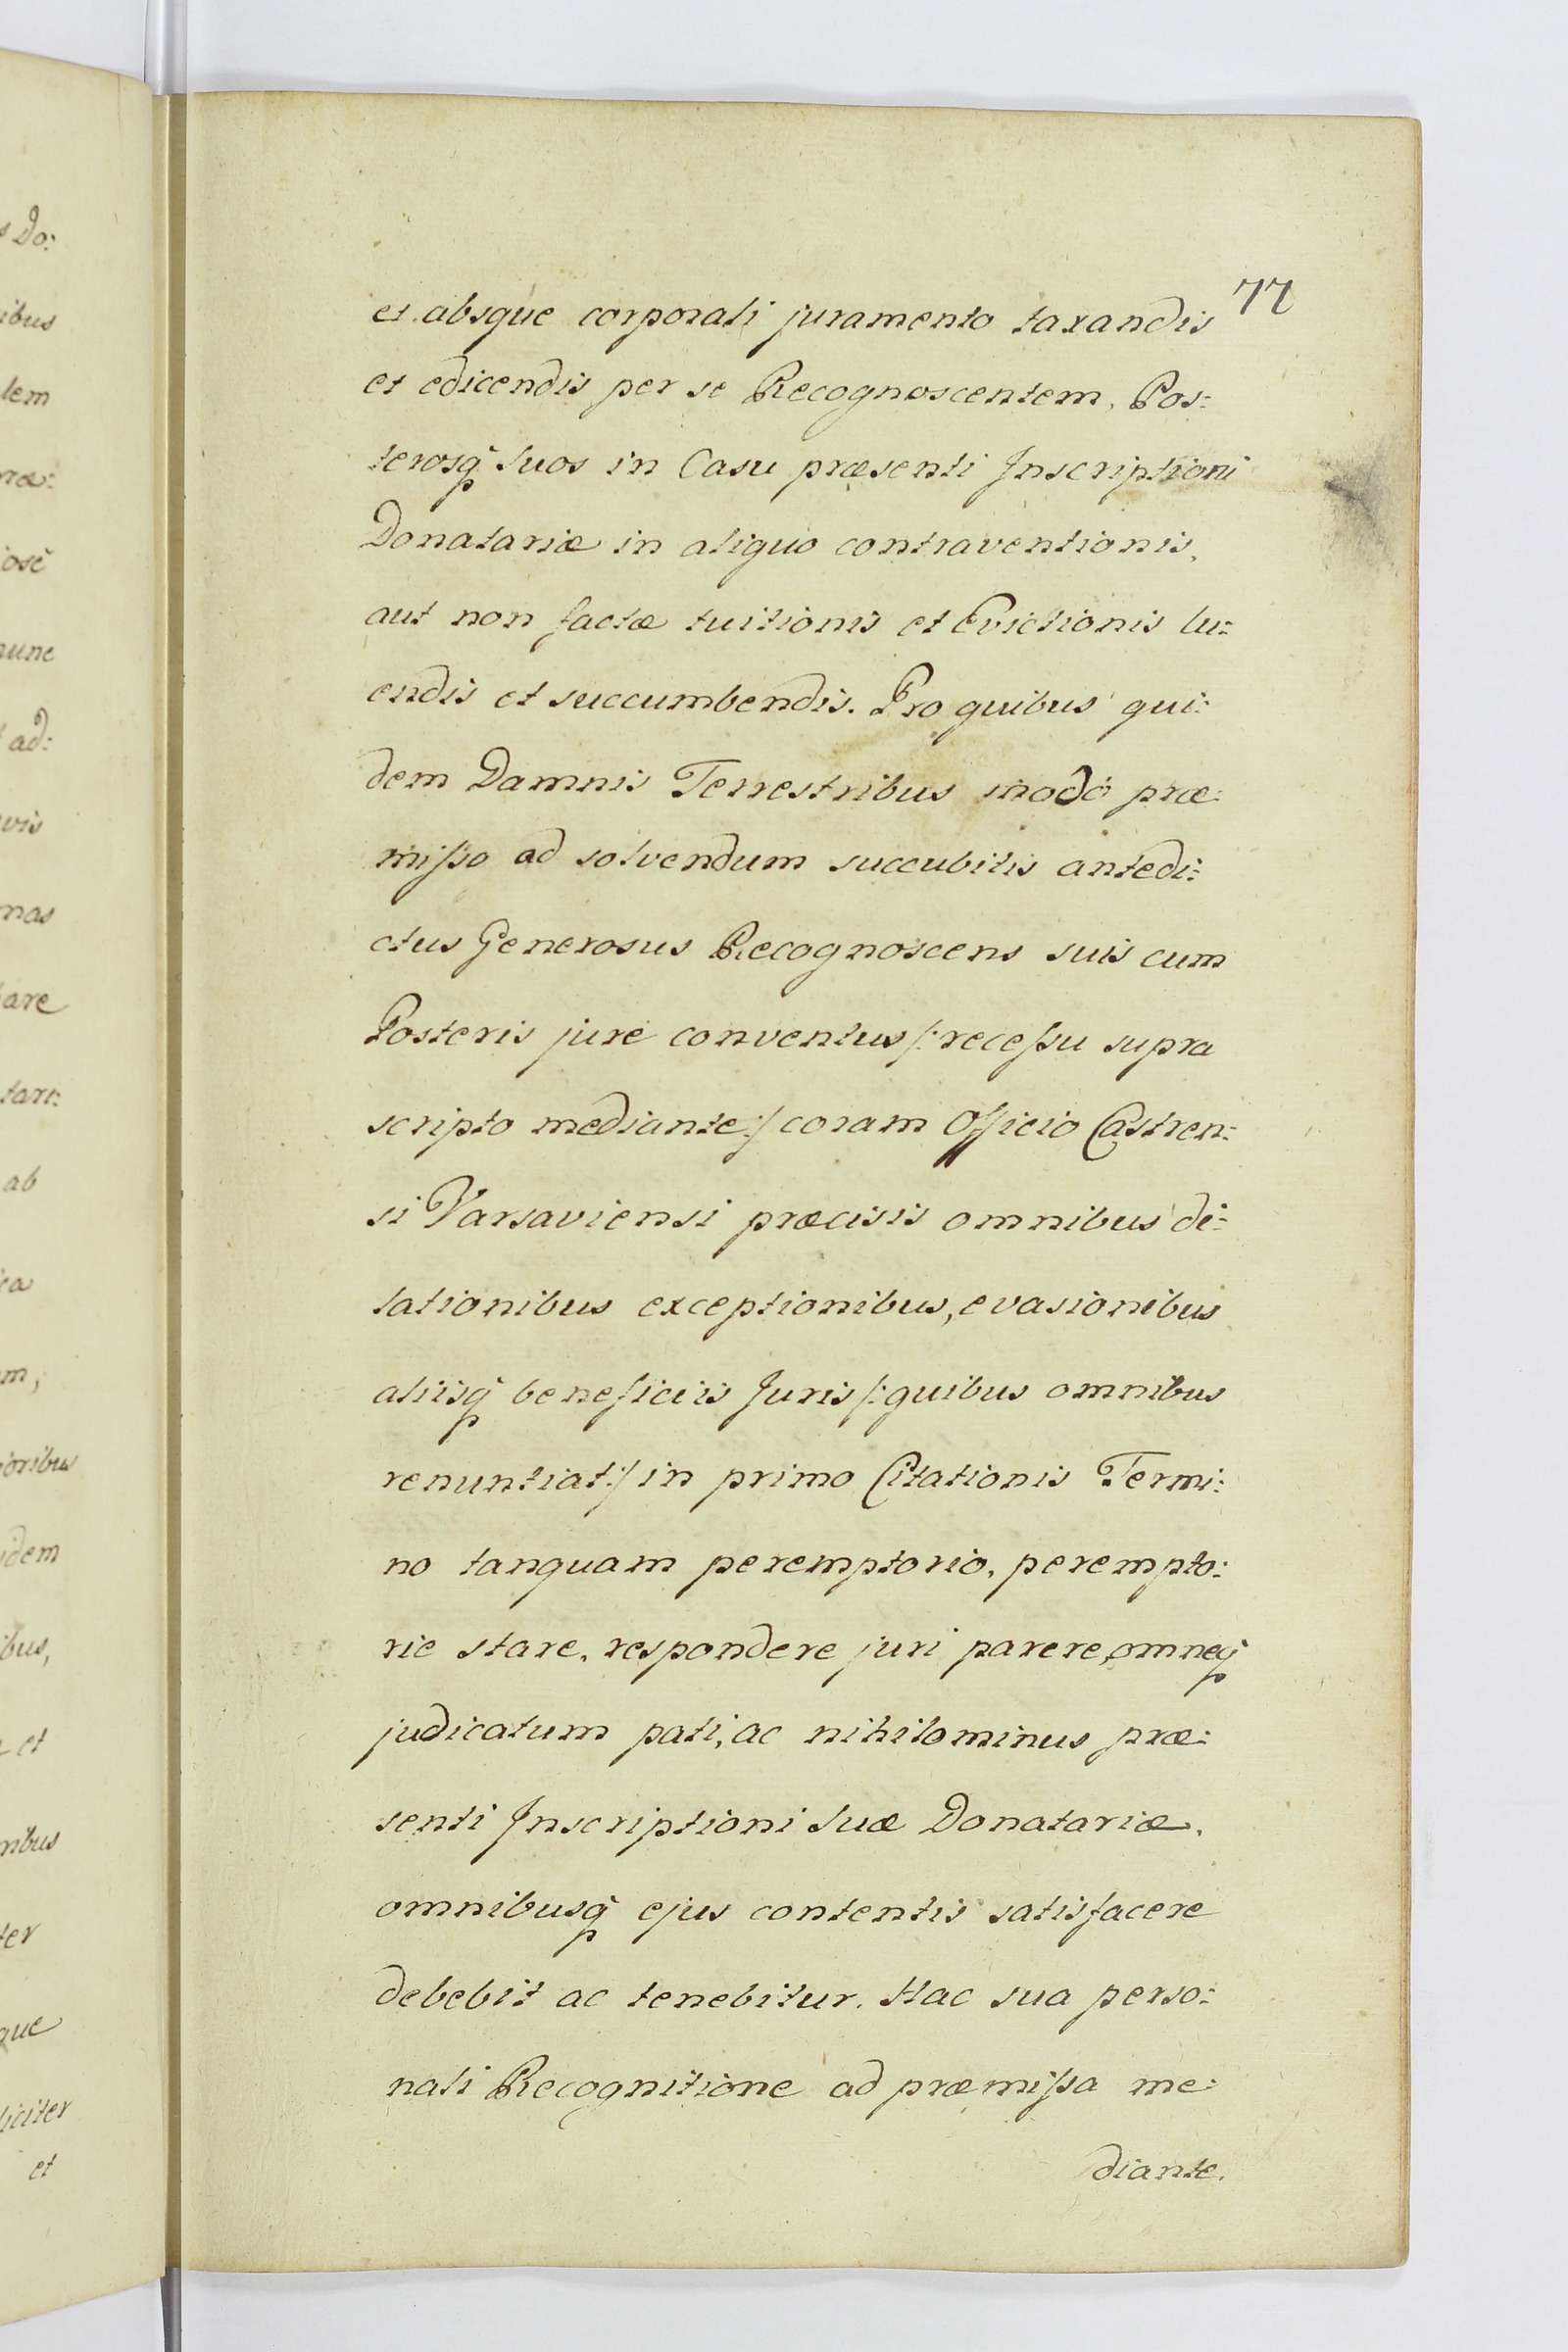 77
et absque corporali juramento taxandis
et edicendis per se Recognoscentem, Pos:
terosq̃ suos in Casu præsenti Inscriptioni
Donatariæ in aliquo contraventionis,
aut non factæ tuitionis et Evictionis lu:
endis et succumbendis. Pro quibus qui:
dem Damnis Terrestribus modo præ:
misso ad solvendum succubitis antedi:
ctus Generosus Recognoscens suis cum
Posteris jure conventus /: recessu supra
scripto mediante :/ coram Officio Castren:
si Varsaviensi præcisis omnibus di:
lationibus exceptionibus, evasionibus
aliisq̃ beneficiis Juris /: quibus omnibus
renuntiat :/ in primo Citationis Termi:
no tanquam peremptorio, perempto:
rie stare, respondere juri parere, omneq̃
judicatum pati, ac nihilominus præ:
senti Inscriptioni suæ Donatariæ,
omnibusq̃ ejus contentis satisfacere
debebit ac tenebitur. Hac sua perso:
nali Recognitione ad præmissa me:
diante.